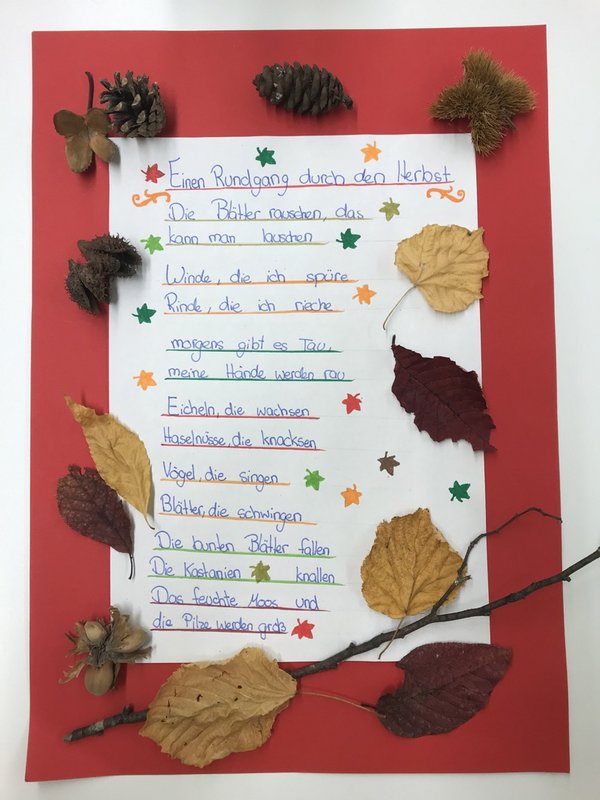 Einen Rundgang durch den Herbst
Die Blätter rauschen, das
kann man lauschen
Winde, die ich spüre
Rinde, die ich rieche
morgens gibt es Tau,
meine Hände werden rau
Eicheln, die wachsen
Haselnüsse, die knacksen
Vögel, die singen
Blätter, die schwingen
Die bunten Blätter fallen
Die Kastanien knallen
Das feuchte Moos und
die Pilze werden groß